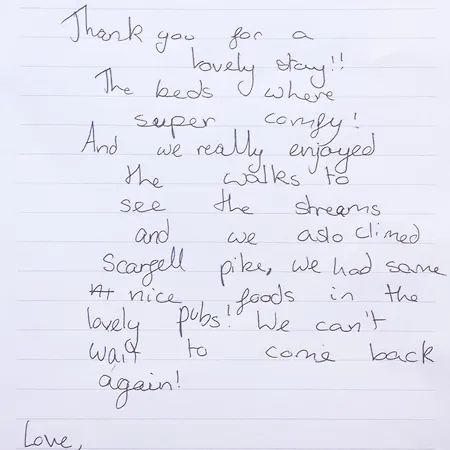 Thank you for a
lovely stay!!
The beds where
super comfy!
And we really enjoyed
the walks to
see the streams
and we aslo climed
Scargell pike, we had some
nice foods in the
lovely pubs! We can't
wait to come back
again!
Love,